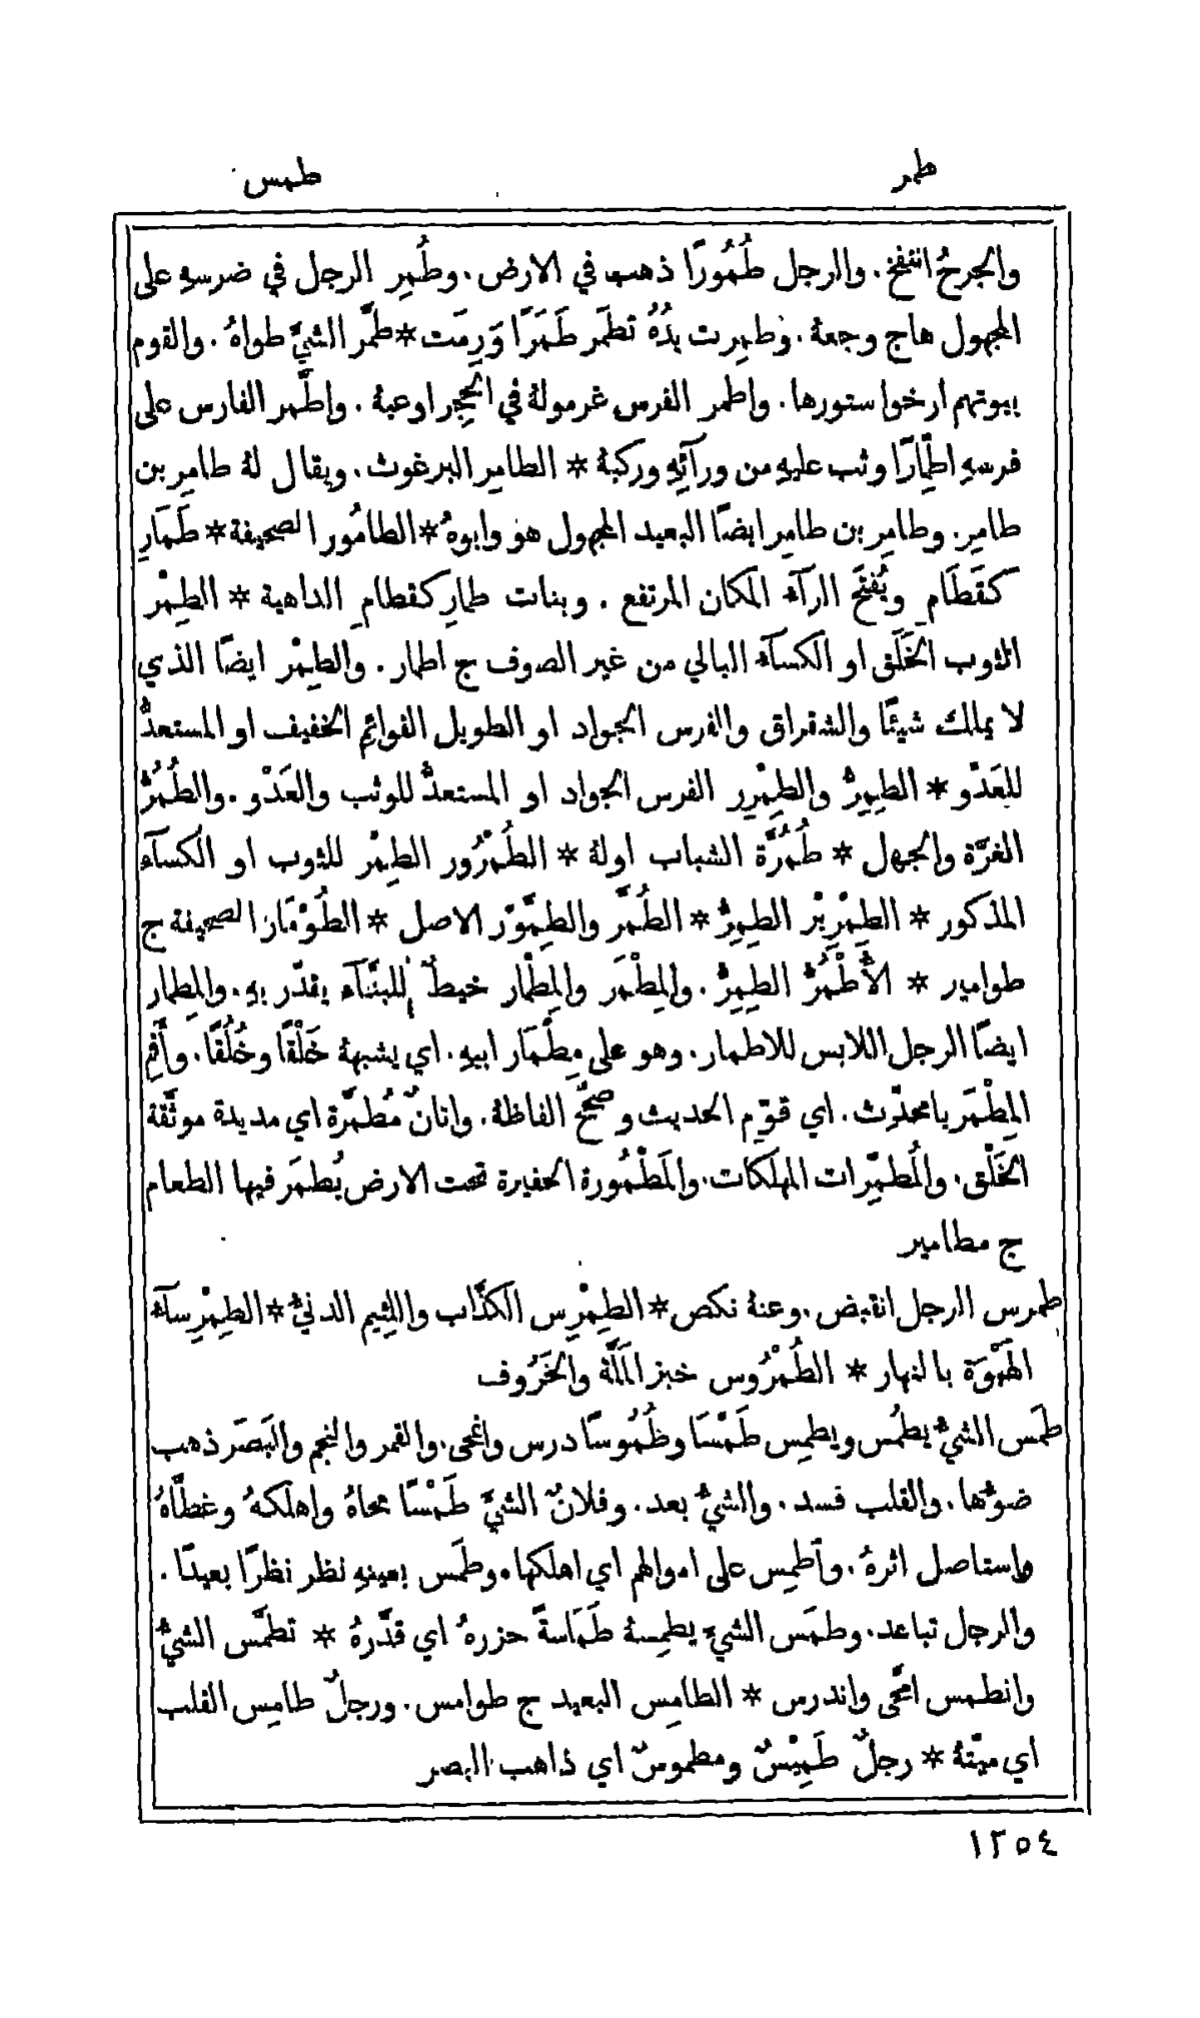 طمر
طمس
والجرحُ انتفخ. والرجل طُمُورًا ذهب في الارض. وطُمِر الرجل في ضرسهِ على
المجهول هاج وجعهُ. وطمِرت يدُهُ تطمَر طَمَرًا وَرِمَت * طمَّر الشيَّ طواهُ. والقوم
بيوتهم ارخوا ستورها. واطمر الفرس غرمولهُ في الحِجِر اوعبهُ. واطَّمر الفارس على
فرسهِ اطِّمارًا وثب عليهِ من ورآئِهِ وركبهُ * الطامِر البرغوث. ويقال لهُ طامِر بن
طامِر. وطامِر بن طامِر ايضًا البعيد المجهول هو وابوهُ * الطامُور الصحيفة * طَمَارِ
كقَطَامِ ويُفتَح الرآء المكان المرتفع. وبنات طمارِ كقطامِ الداهية * الطِمْر
الثوب الخَلَق او الكسآء البالي من غير الصوف ج اطمار. والطِمْر ايضًا الذي
لا يملك شيئًا والشقراق والفرس الجواد او الطويل القوائِم الخفيف او المستعدُّ
للعَدْو * الطِمِرُّ والطِمْرِر الفرس الجواد او المستعدُّ للوثب والعَدْو. والطُمُرُّ
الغرَّة والجهل * طُمُرَّة الشباب اولهُ * الطُمْرُور الطِمْر للثوب او الكسآء
المذكور * الطِمْرِيْر الطِمِرُّ * الطُمَّر والطِمَّوْر الاصل * الطُوْمَار الصحيفة ج
طوامير * الأُطْمُرُّ الطِمِرُّ. والمِطْمَر والمِطْمار خيطٌ للبنَّآء يقدّر بهِ. والمِطمار
ايضًا الرجل اللابس للاطمار. وهو على مِطْمَار ابيهِ. اي يشبههُ خَلْقًا وخُلُقًا. وأَقِم
المِطْمَر يا محدّث. اي قوِّم الحديث وصحّح الفاظهُ. واتانٌ مُطمَّرة اي مديدة موثَّقة
الخَلْق. والمُطمِّرات المهلكات. والمَطْمُورة الحفيرة تحت الارض يُطمَر فيها الطعام
ج مطامير
طمرس الرجل انقبض. وعنهُ نكص * الطِمْرِس الكذَّاب واللئيم الدنيُّ * الطِمْرِسآء
الهَبْوَة بالنهار * الطُمْرُوس خبز المَلَّة والخَرُوف
طمَس الشيُّ يطمُس ويطمِس طَمْسًا وطُمُوسًا درس وانمحى. والقمر والنجم والبَصَر ذهب
ضوءُها. والقلب فسد. والشيُّ بعد. وفلانٌ الشيَّ طَمْسًا محاهُ واهلكهُ وغطَّاهُ
واستاصل اثرهُ. وأطمِس على اموالهم اي اهلكها. وطمَس بعينهِ نظر نظرًا بعيدًا.
والرجل تباعد. وطمَس الشيَّ يطمِسهُ طَمَاسةً حزرهُ اي قدَّرهُ * تطمَّس الشيُّ
وانطمس امَّحى واندرس * الطامِس البعيد ج طوامس. ورجلٌ طامِس القلب
اي ميّتهُ * رجلٌ طَمِيْسٌ ومطموسٌ اي ذاهب البصر
١٢٥٤